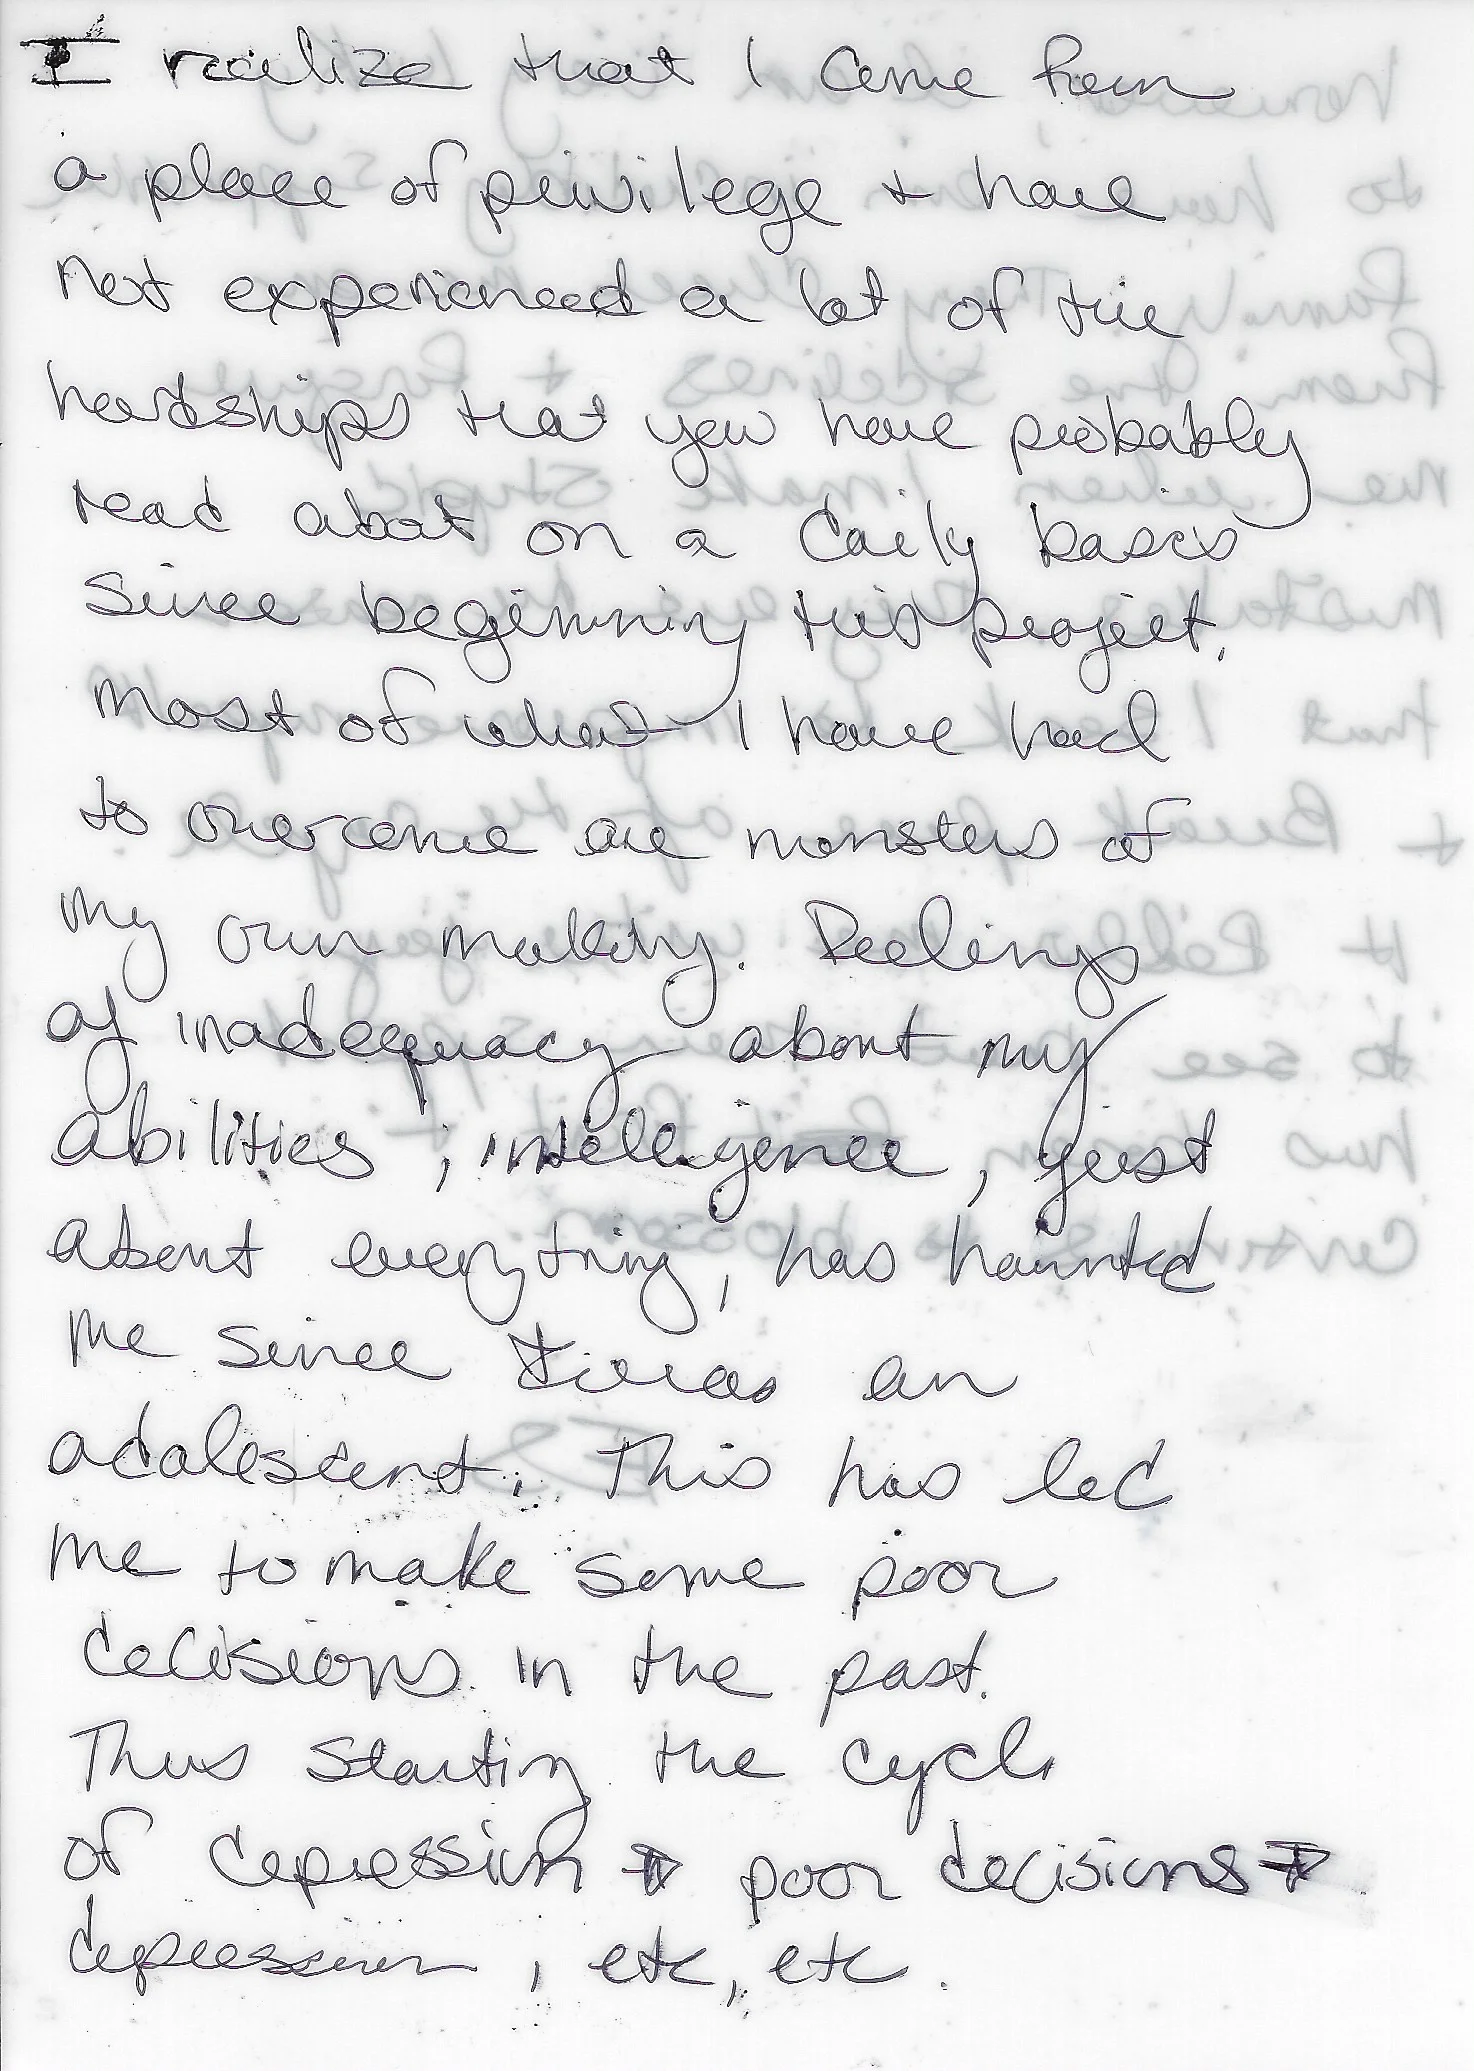 I realize that I come from
a place of privilege + have
not experienced a lot of the
hardships that you have probably
read about on a daily basis
since beginning this project.
Most of what I have had
to overcome are monsters of
my own making. Feelings
of inadequacy about my
abilities, intelligence, just
about everything, has haunted
me since I was an
adolescent. This has led
me to make some poor
decisions in the past.
Thus starting the cycle
of depression → poor decisions →
depression, etc, etc.